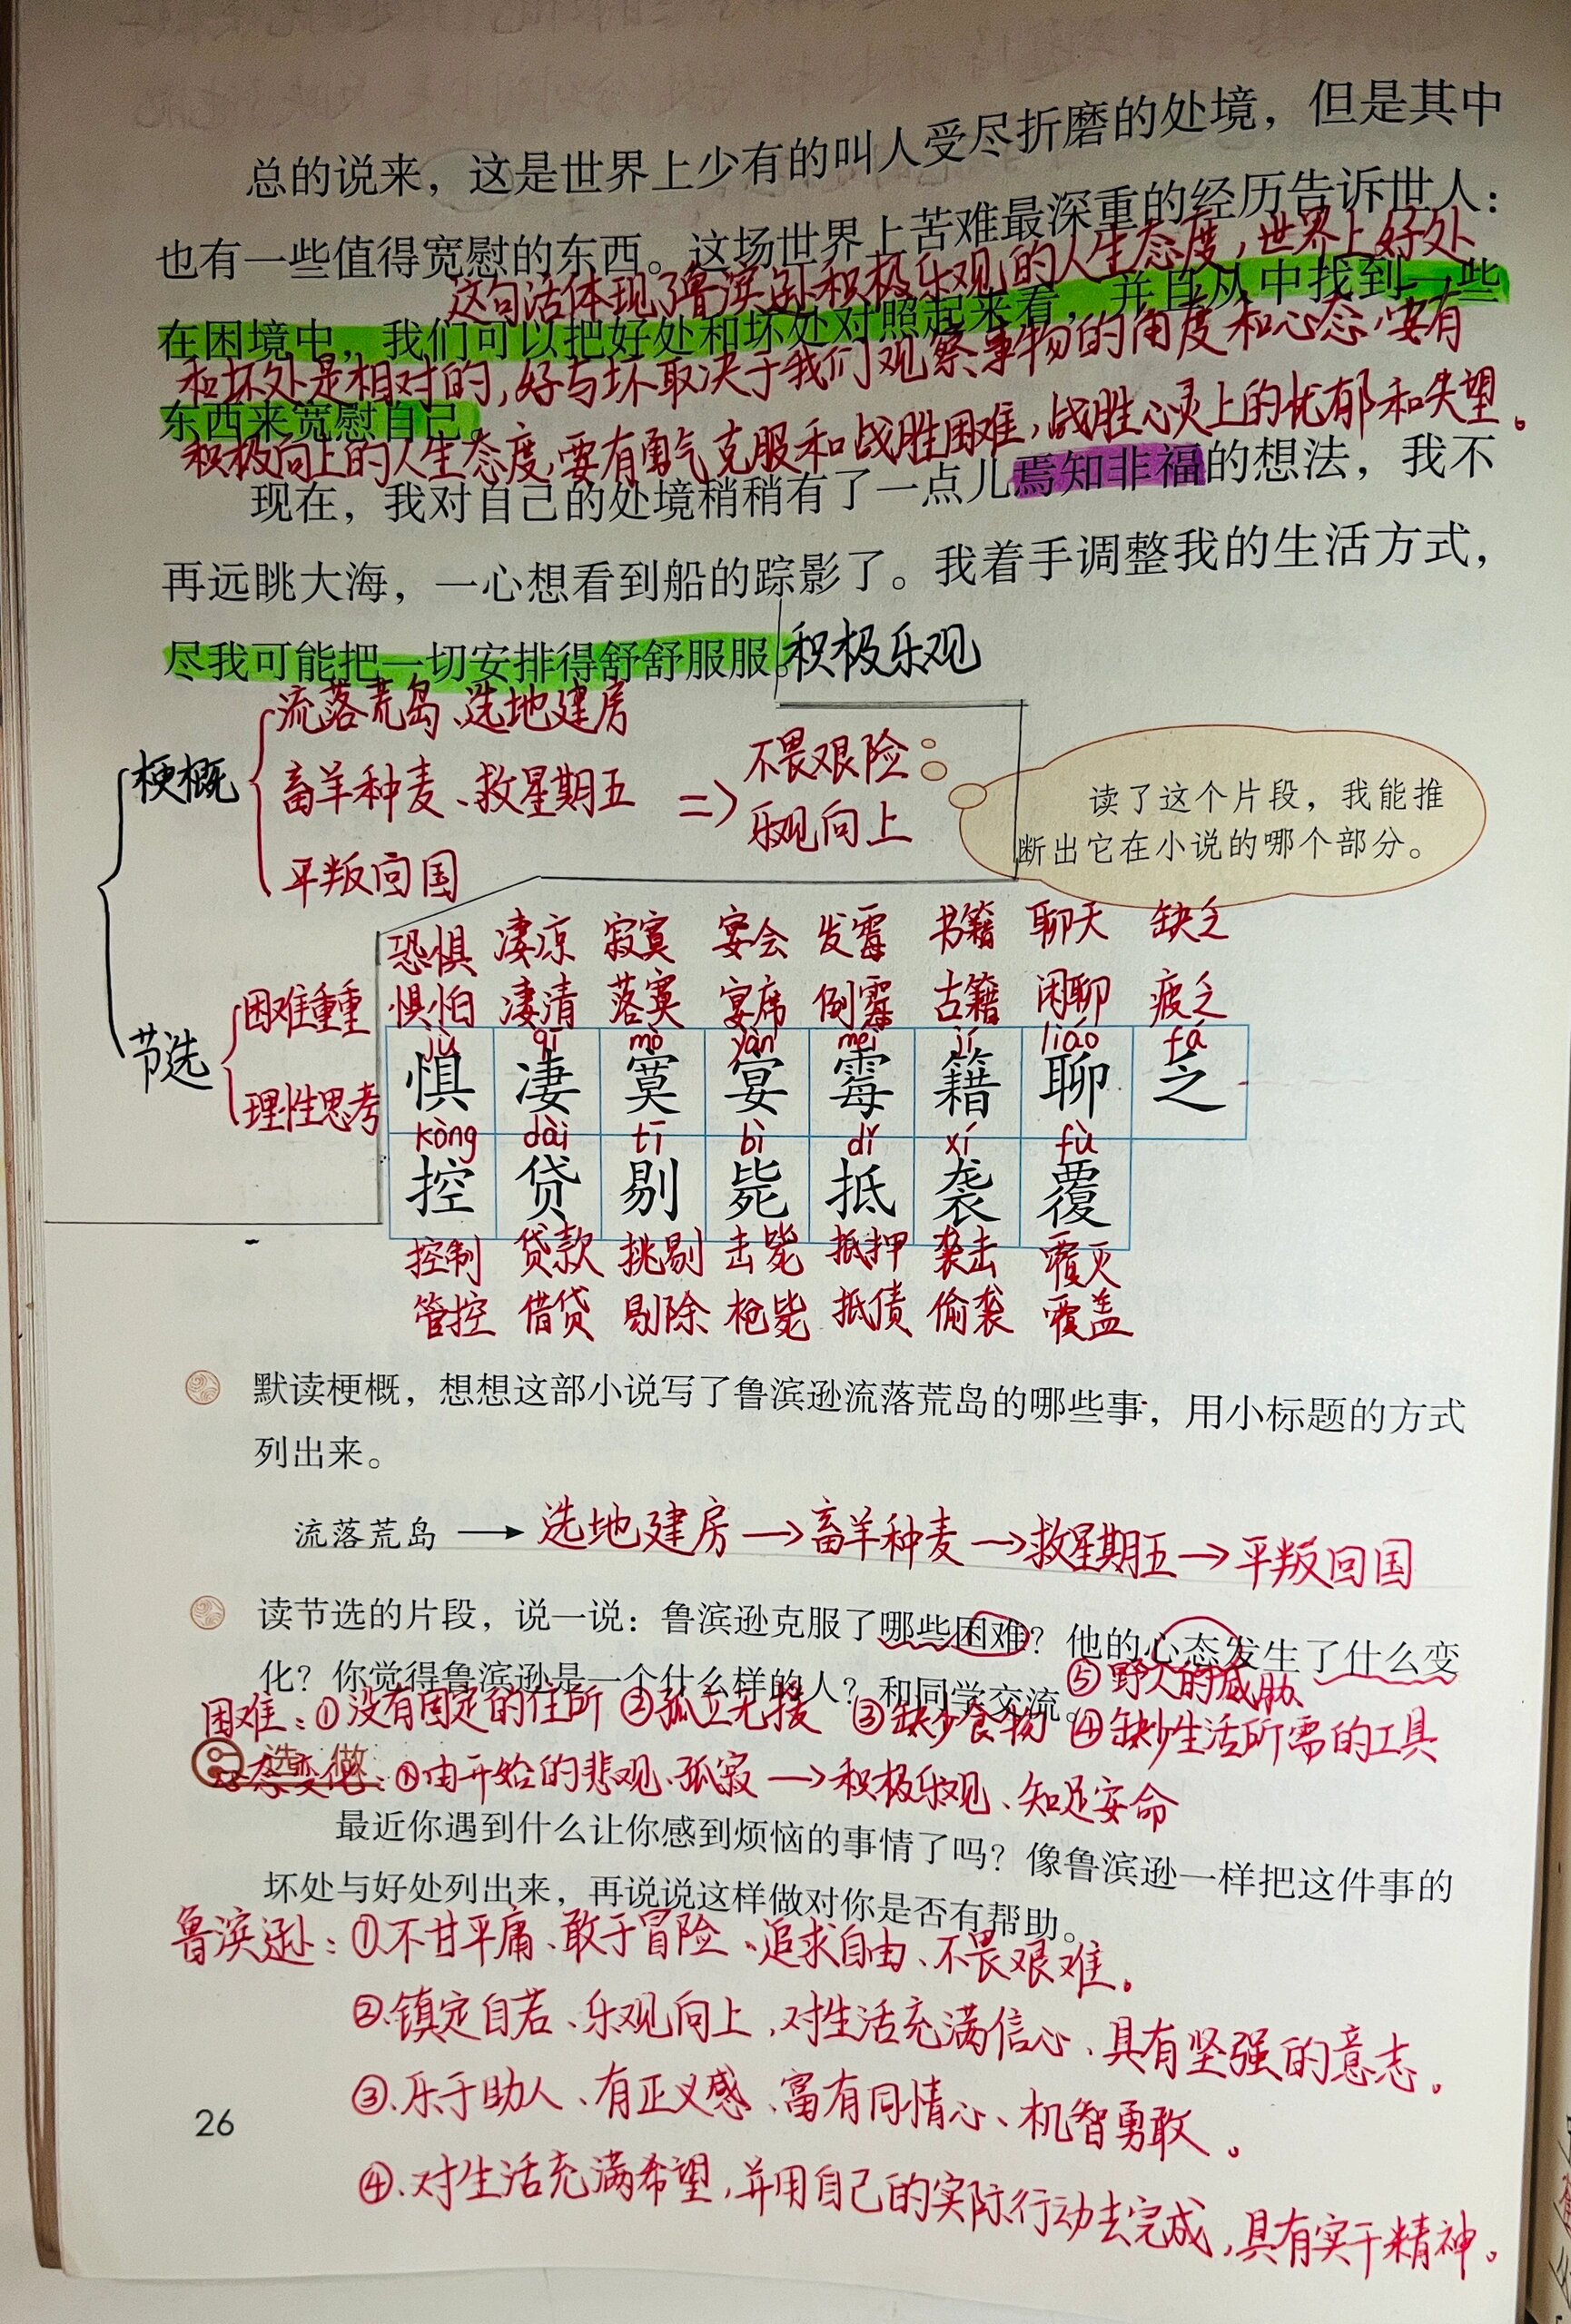 总的说来，这是世界上少有的叫人受尽折磨的处境，但是其中
也有一些值得宽慰的东西。这场世界上苦难最深重的经历告诉世人：
这句话体现了鲁滨逊积极乐观的人生态度，世界上好处
在困境中，我们可以把好处和坏处对照起来看，并且从中找到一些
和坏处是相对的，好与坏取决于我们观察事物的角度和心态，要有
东西来宽慰自己。
积极向上的人生态度，要有勇气克服和战胜困难，战胜心灵上的忧郁和失望。
现在，我对自己的处境稍稍有了一点儿焉知非福的想法，我不
再远眺大海，一心想看到船的踪影了。我着手调整我的生活方式，
尽我可能把一切安排得舒舒服服。积极乐观
流落荒岛、选地建房
梗概
畜羊种麦、救星期五 => 不畏艰险
乐观向上
平叛回国
读了这个片段，我能推
断出它在小说的哪个部分。
恐惧 凄凉 寂寞 宴会 发霉 书籍 聊天 缺乏
困难重重 惧怕 凄清 落寞 宴席 倒霉 古籍 闲聊 疲乏
节选
理性思考
jù qī mò yàn méi jí liáo fá
惧 凄 寞 宴 霉 籍 聊 乏
kòng dài tī bì dǐ xí fù
控 贷 剔 毙 抵 袭 覆
控制 贷款 挑剔 击毙 抵押 袭击 覆灭
管控 借贷 剔除 枪毙 抵债 偷袭 覆盖
默读梗概，想想这部小说写了鲁滨逊流落荒岛的哪些事，用小标题的方式
列出来。
流落荒岛 → 选地建房 → 畜羊种麦 → 救星期五 → 平叛回国
读节选的片段，说一说：鲁滨逊克服了哪些困难？他的心态发生了什么变
化？你觉得鲁滨逊是一个什么样的人？和同学交流。
⑤野人的威胁
困难：①没有固定的住所 ②孤立无援 ③缺少食物 ④缺少生活所需的工具
选做
心态变化：①由开始的悲观、孤寂 → 积极乐观、知足安命
最近你遇到什么让你感到烦恼的事情了吗？像鲁滨逊一样把这件事的
坏处与好处列出来，再说说这样做对你是否有帮助。
鲁滨逊：①不甘平庸、敢于冒险、追求自由、不畏艰难。
②.镇定自若、乐观向上，对生活充满信心、具有坚强的意志。
③.乐于助人、有正义感、富有同情心、机智勇敢。
26
④.对生活充满希望，并用自己的实际行动去完成，具有实干精神。